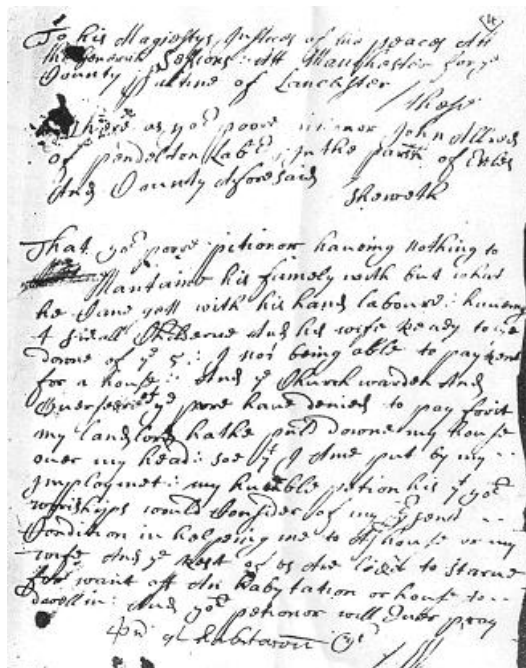 4
To his Magiestys Justices of the peace Att
the Generall Sessions Att Manchester for ye
County Palline of Lanchster
/ these
Whereas yor poore John Allred
of pendelton Labr in the parish of Ecles
And County Aforesaid
Sheweth
That yor poore petionor haueing nothing to
Mantaine his famely with but what
he Cane gett with his hand laboure: haueing
4 small Childerne And his wife Ready to lye
downe of ye 5: I not being able to pay Rent
for a house: And ye Church warden And
Ouerseers of ye pore haue denied to pay for it
my landlord hathe puld downe my house
ouer my head: soe yt I Ame put by my
Imploymet: my humble petion his yt yor
worships would Consider of my Psent
Condition in helpeing me to A house or my
wife And ye Rest of vs Are like to starue
for want off An habytation or house to
dwell in: And yor petionor will Euer pray